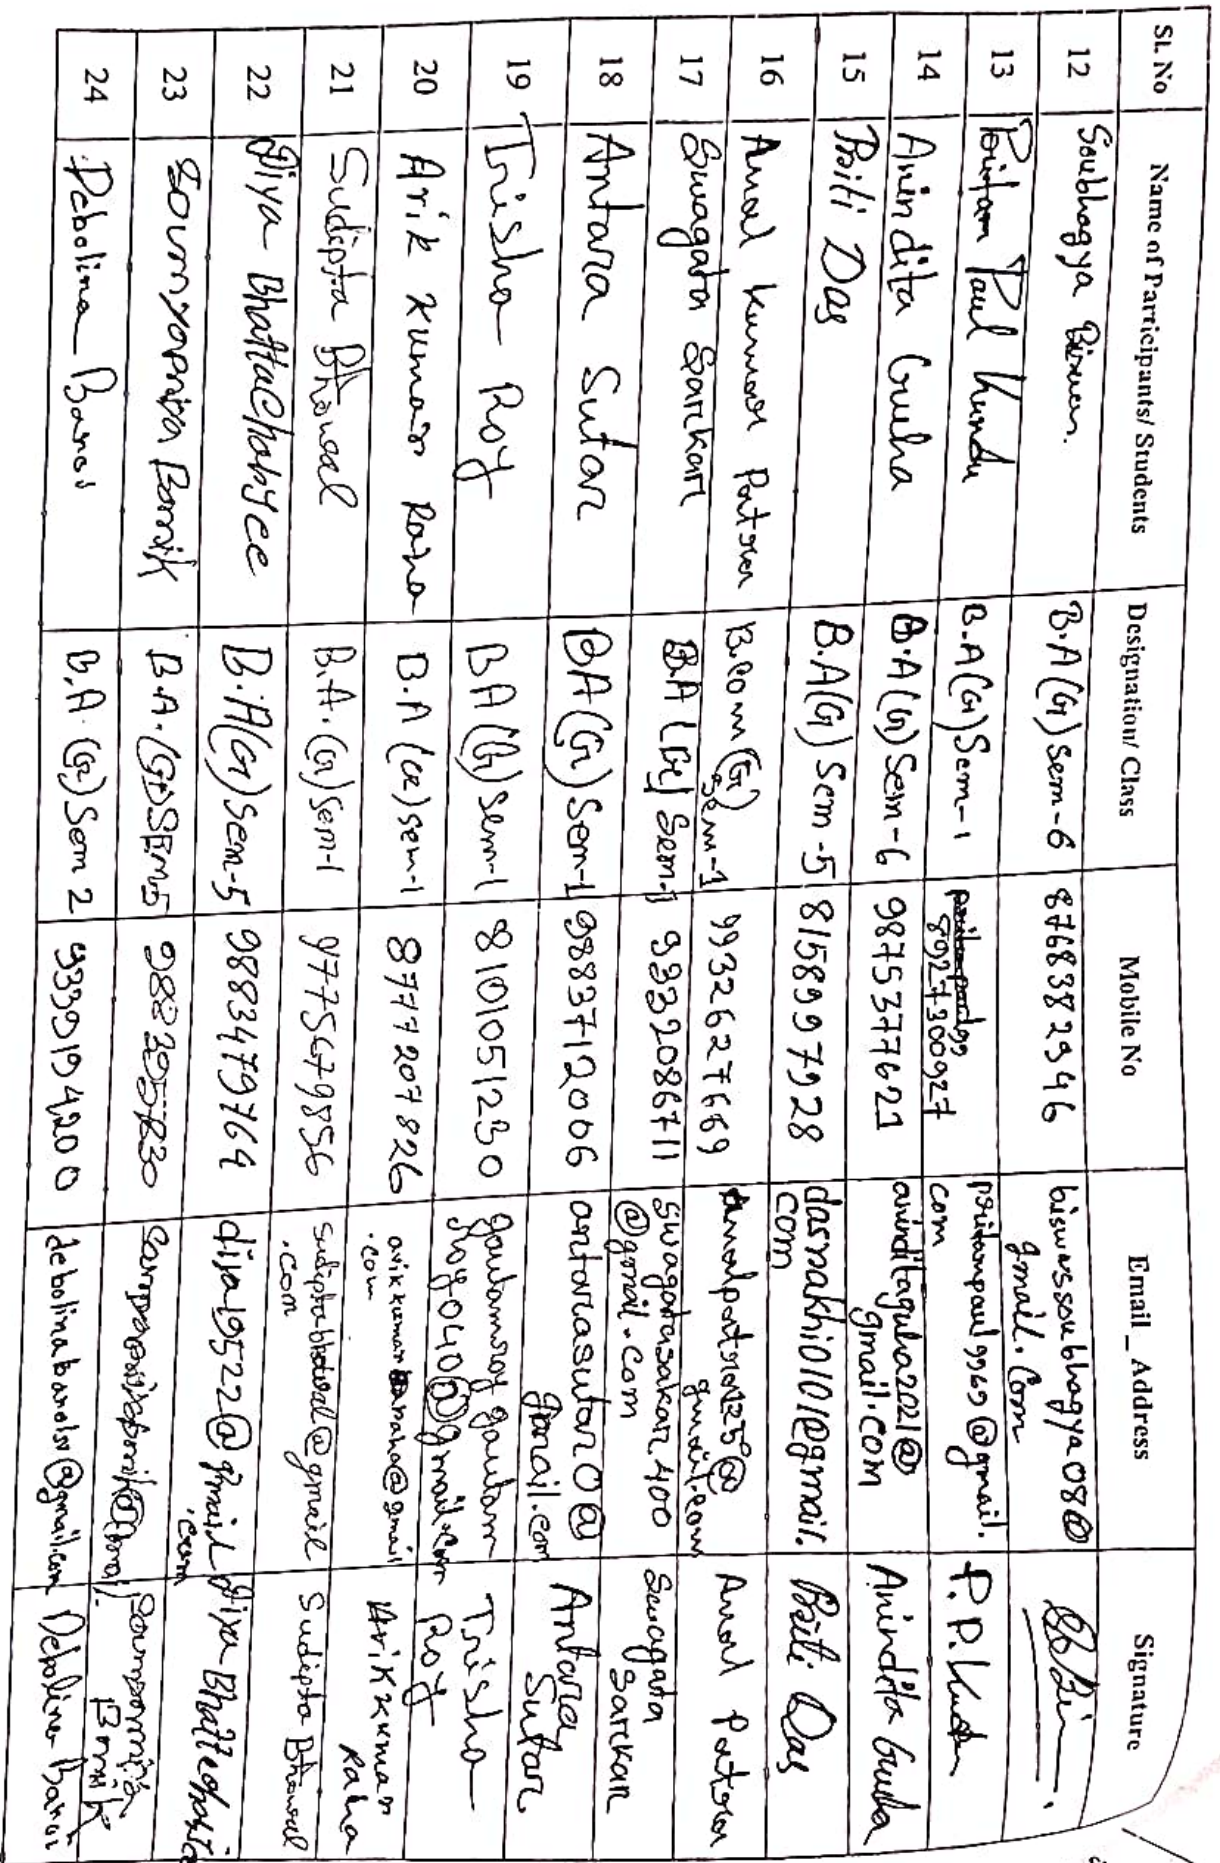 Sl. No Name of Participants/ Students Designation/ Class Mobile No Email_ Address Signature
12 Soubhagya Biswas. B.A(G) Sem-6 8768382946 biswassoubhagya08@
gmail.com
13 Pritam Paul Kundu B.A(G) Sem-1 8927300927 pritampaul9969@gmail.
com P.P.Kundu
14 Anindita Guha B.A(G) Sem-6 9875377621 aninditaguha2021@
gmail.com Anindita Guha
15 Priti Das B.A(G) Sem-5 8158997928 dasrakhi0101@gmail.
com Priti Das
16 Amal Kumar Patra B.com(G)
Sem-1 9932627669 @
gmail.com Amal Patra
17 Swagata Sarkar B.A (G) Sem-1 9332086711 swagatasakar400
@gmail.com Swagata
Sarkar
18 Antara Sutar BA(G) Sem-1 9883712006 antarasutar0@
gmail.com Antara
Sutar
19 Trisha Roy BA(G) Sem-1 8101051230 gautamroygautam
roy040@gmail.com Trisha
Roy
20 Arik Kumar Raha B.A (G) Sem-1 8777207826 @gmail
.com Arik Kumar
Raha
21 Sudipta Bhowal B.A.(G) Sem-1 9775679856 sudiptabhowal@gmail
.com Sudipta Bhowal
22 Diya Bhattacharjee B.A(G) Sem-5 9883479764 dija19522@gmail
.com Diya
23 Bomik B.A.(G) SEM-5
24 Debolina Baroi B.A.(G) Sem 2 9339194200 @gmail.com Debolina Baroi